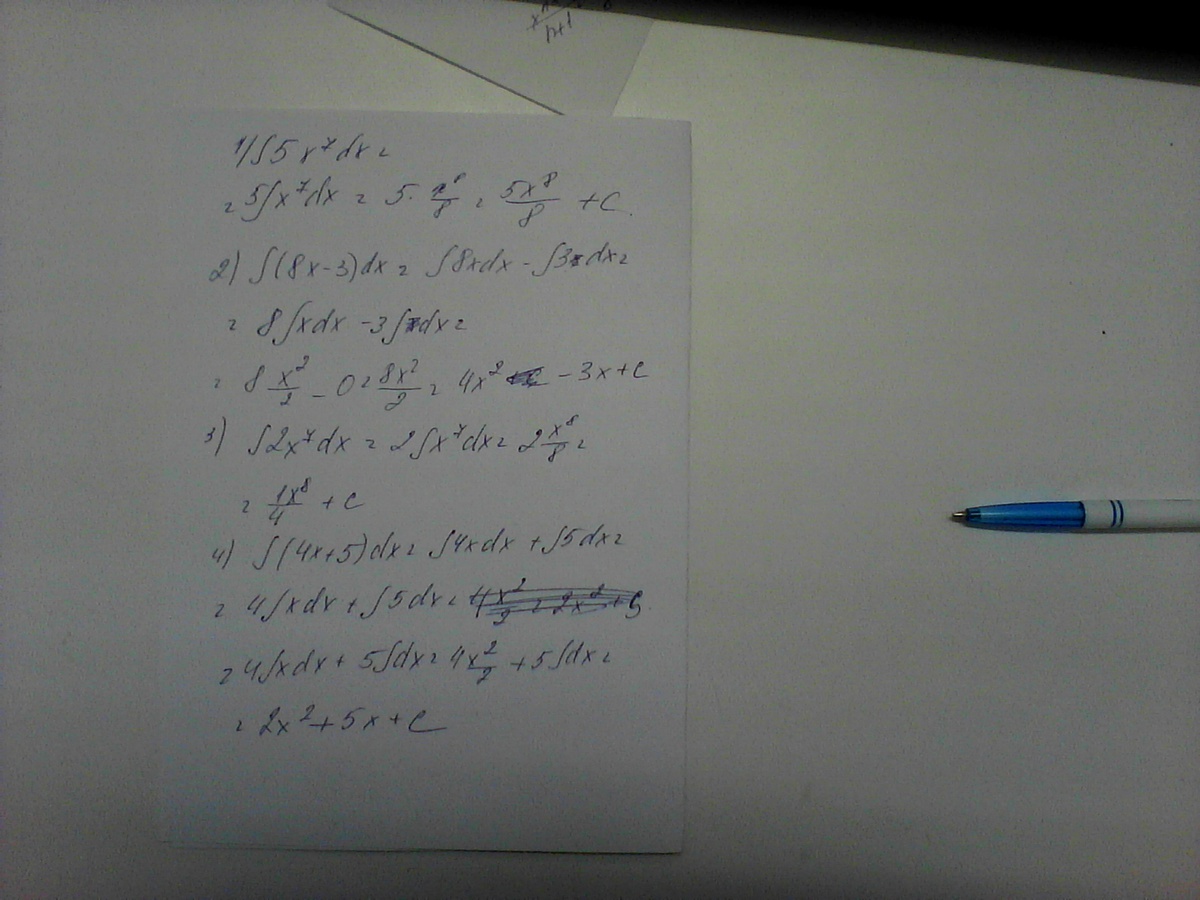 x^(n+1)/(n+1)
1) ∫5x^7dx =
= 5∫x^7dx = 5·x^8/8 = 5x^8/8 + C.
2) ∫(8x-3)dx = ∫8xdx - ∫3dx =
= 8∫xdx - 3∫dx =
= 8 x^2/2 - 0 = 8x^2/2 = 4x^2 - 3x + C
3) ∫2x^7dx = 2∫x^7dx = 2 x^8/8 =
= 1x^8/4 + C
4) ∫(4x+5)dx = ∫4xdx + ∫5dx =
= 4∫xdx + ∫5dx = 4x^2/2 = 2x^2 + 5
= 4∫xdx + 5∫dx = 4x^2/2 + 5∫dx =
= 2x^2 + 5x + C